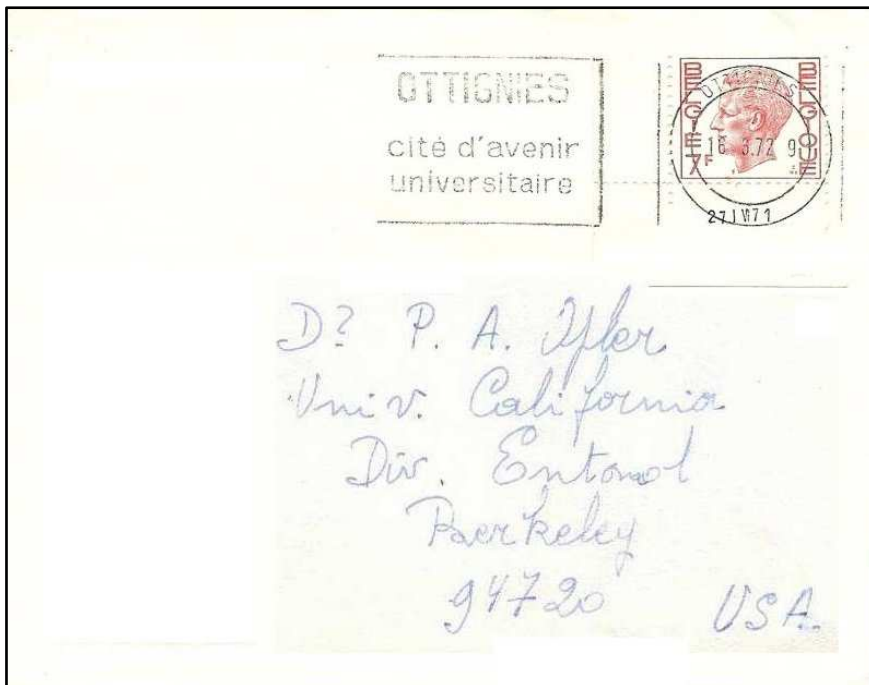 OTTIGNIES
cité d'avenir
universitaire
BELGIË BELGIQUE
7F
OTTIGNIES
16 3.72 9
D? P. A.
Univ. California
Div. Entomol
Berkeley
94720 USA.